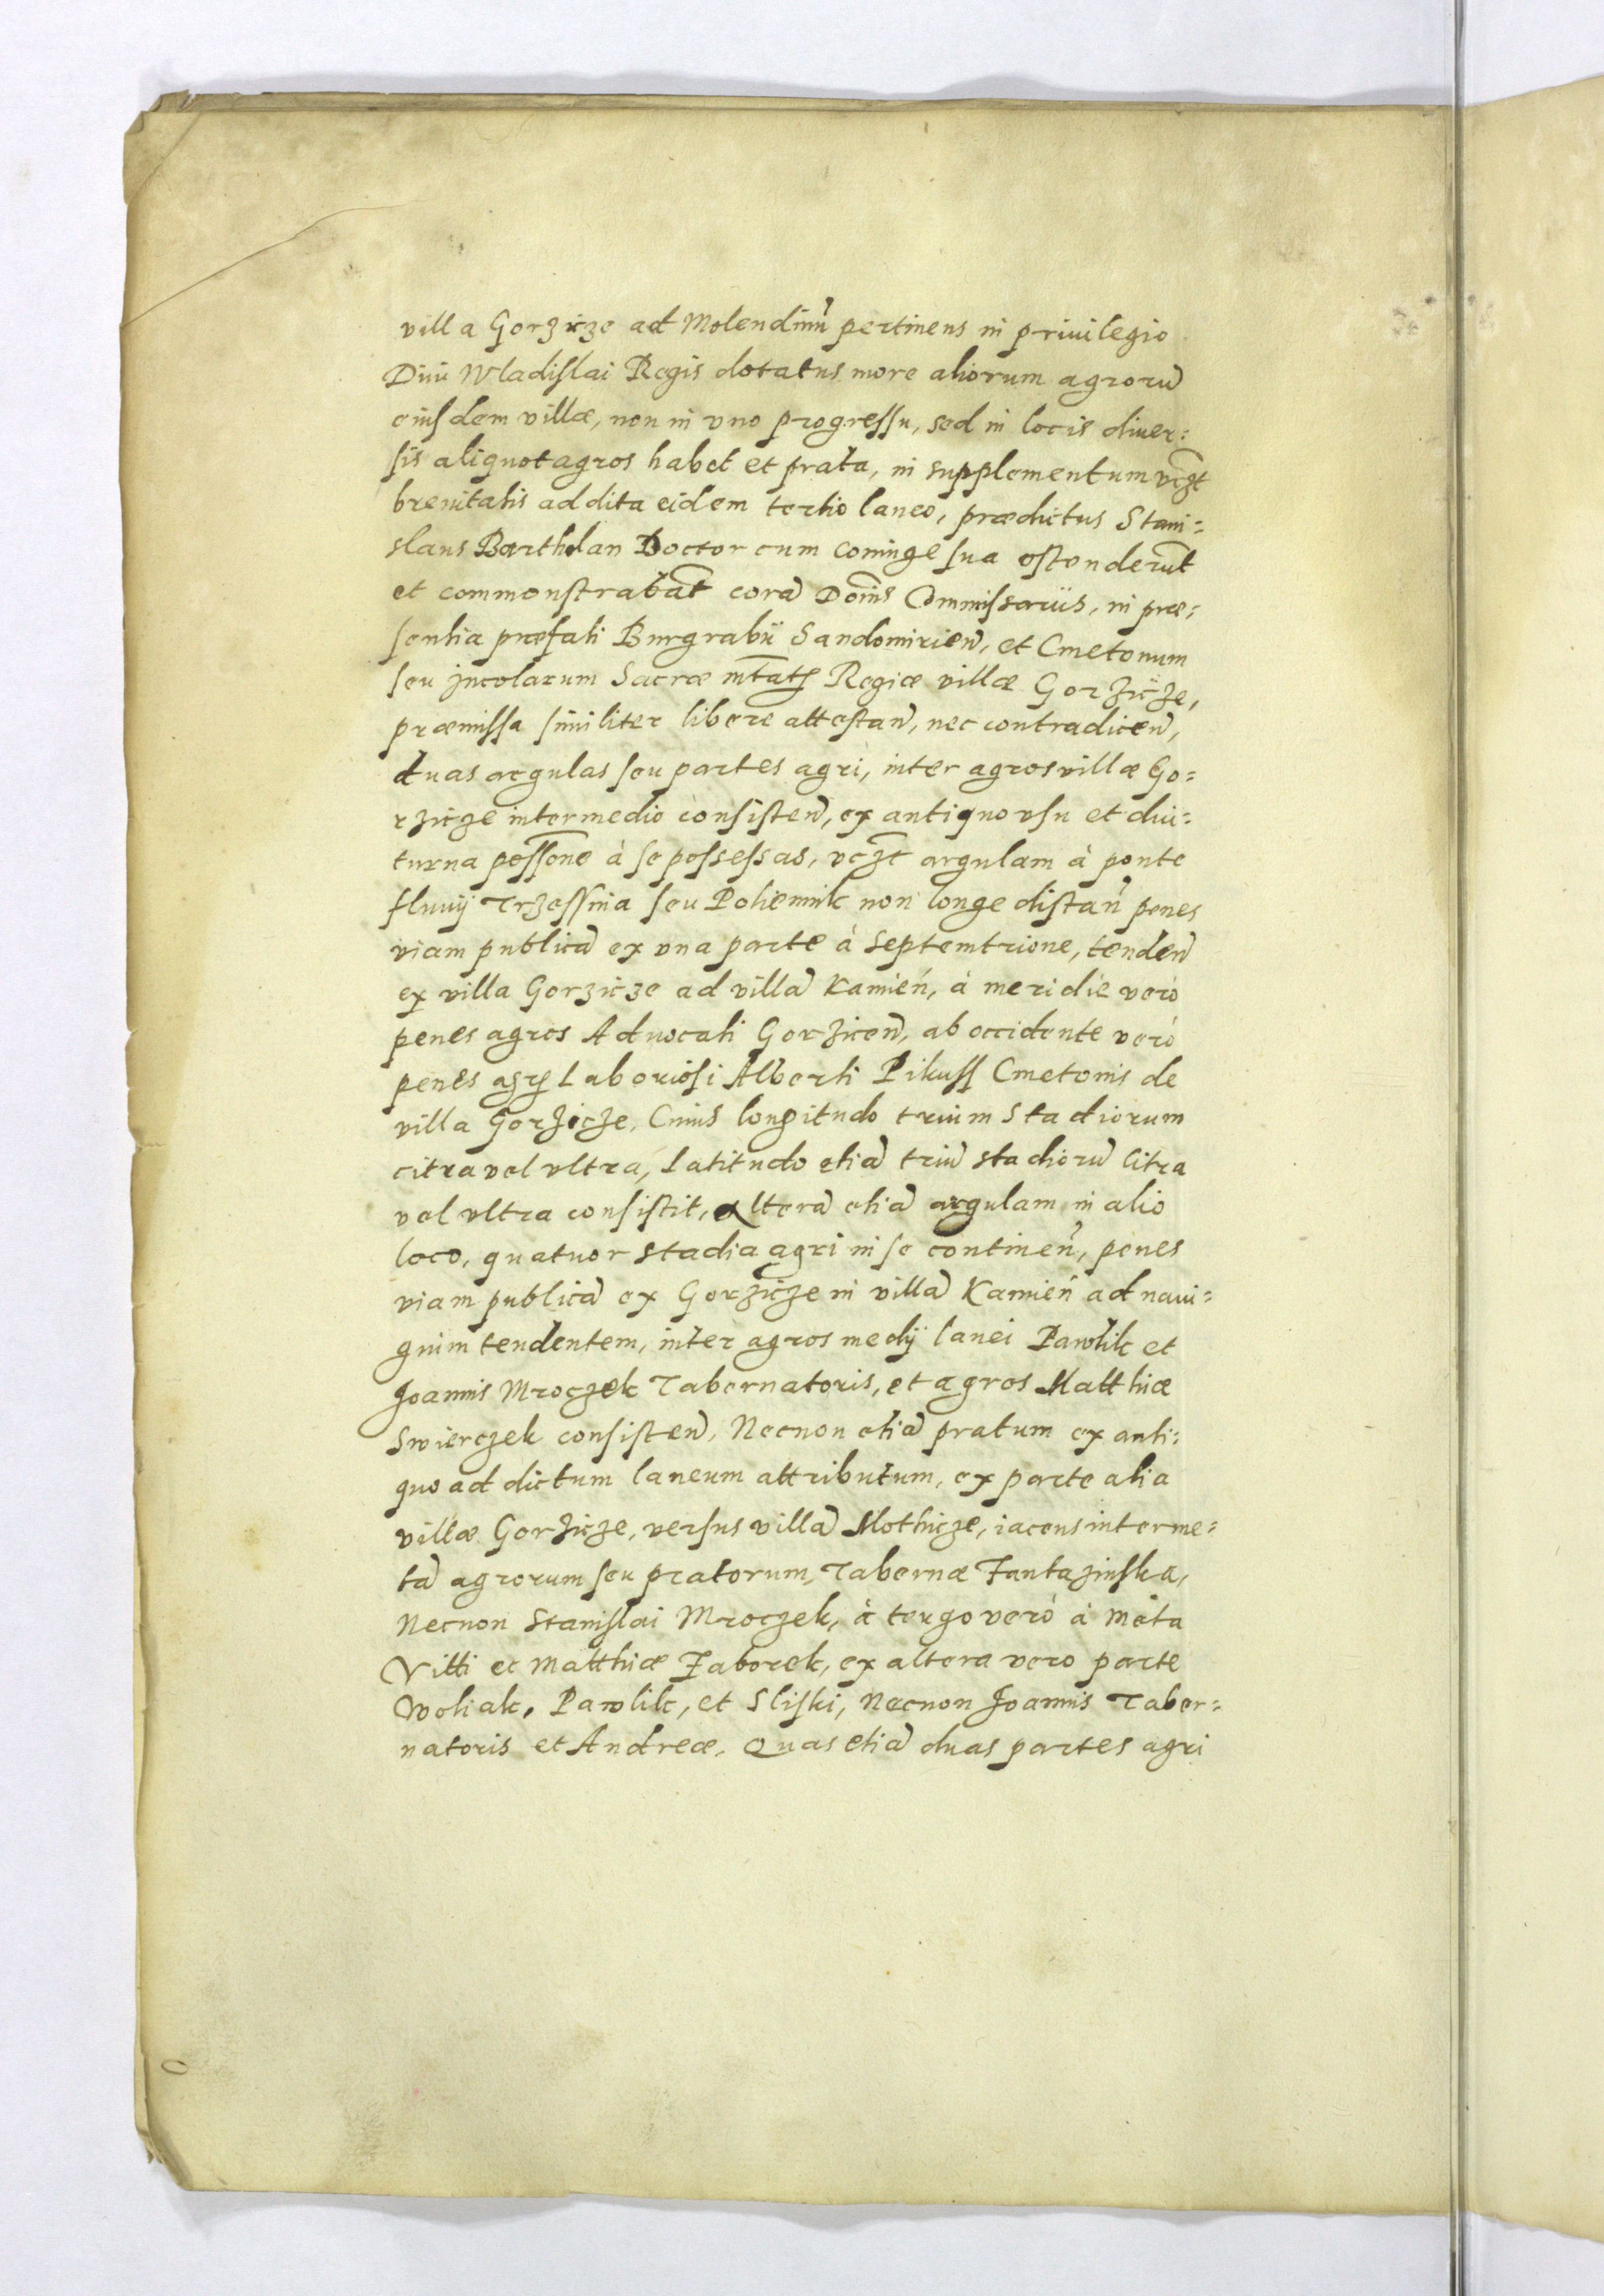 villa Gorzicze ad Molendinū pertinens in priuilegio
Diui Wladislai Regis dotatus more aliorum agrorū
eiusdem villæ, non in vno progressu, sed in locis diuer=
sis aliquot agros habet et prata, in supplementum vczt
breuitatis addita eidem tertio laneo, prædictus Stani=
slaus Bartholan Doctor cum coniuge sua ostenderūt
et commonstrabāt corā Dōnis Commissariis, in præ=
sentia præfati Burgrabii Sandomirien̄, et Cmetonum
seu jncolarum Sacræ mtatis Regiæ villæ Gorzicze,
præmissa similiter libere attestan̄, nec contradicen̄,
duas argulas seu partes agri, inter agros villæ Go=
rzicze intermedio consisten̄, ex antiquo vsu et diu=
turna possone à se possessas, vczt argulam à ponte
fluuij Trzessnia seu Poliennik non longe distan̄ penes
viam publicā ex vna parte à septemtrione, tenden̄
ex villa Gorzicze ad villā Kamień, à meridie verò
penes agros Aduocati Gorzicen̄, ab occidente verò
penes agrs Laboriosi Alberti Pikuss Cmetonis de
villa Gorzicze. Cuius longitudo trium stadiorum
citra vel vltra, Latitudo etiā triū stadiorū Citra
vel vltra consistit, Alterā etiā argulam in alio
loco, quatuor stadia agri in se continen̄, penes
viam publicā ex Gorzicze in villā Kamień ad naui=
guim tendentem, inter agros medij lanei Pawlik et
Joannis Mroczek Tabernatoris, et agros Matthiæ
Swierczek consisten̄, Necnon etiā pratum ex anti=
quo ad dictum laneum attributum, ex parte alia
villæ Gorzicze, versus villā Mothicze, iacens interme=
tā agrorum seu pratorum, Tabernæ Fantazinska,
Necnon Stanislai Mroczek, à tergo verò à meta
Vitti et Matthiæ Faborek, ex altera vero parte
Woliak, Pawlik, et Sliski, Necnon Joannis Taber=
natoris et Andreæ. Quas etiā duas partes agri